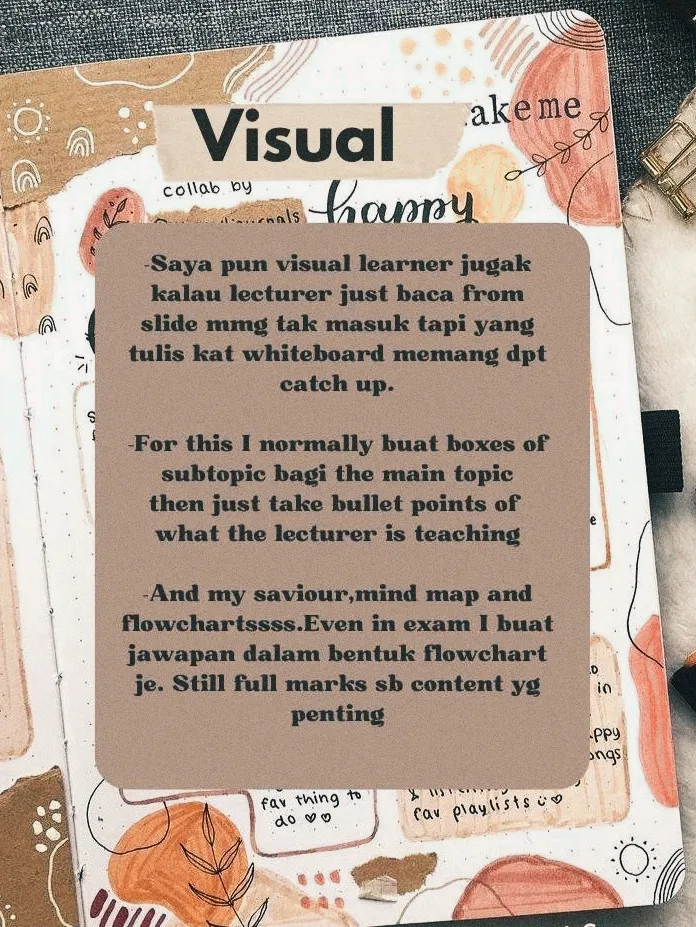 Visual
ake me
collab by
happy
-Saya pun visual learner jugak
kalau lecturer just baca from
slide mmg tak masuk tapi yang
tulis kat whiteboard memang dpt
catch up.
-For this I normally buat boxes of
subtopic bagi the main topic
then just take bullet points of
what the lecturer is teaching
-And my saviour,mind map and
flowchartssss.Even in exam I buat
jawapan dalam bentuk flowchart
je. Still full marks sb content yg
penting
in
fav thing to
do
fav playlists